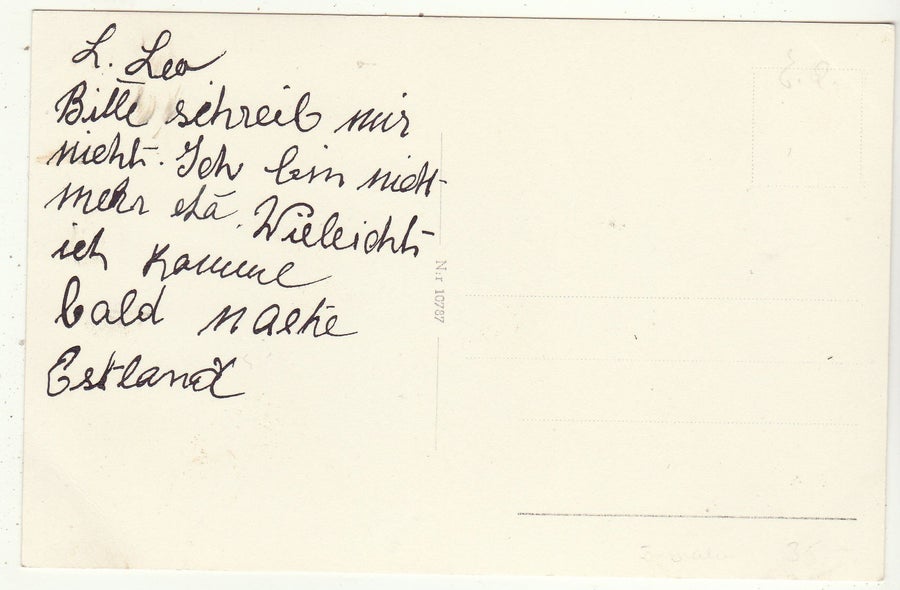 L. Leo
Bitte schreib mir
nicht. Ich bin nicht
mehr da. Vieleicht
ich komme
bald nache
Estland
Nr 10787